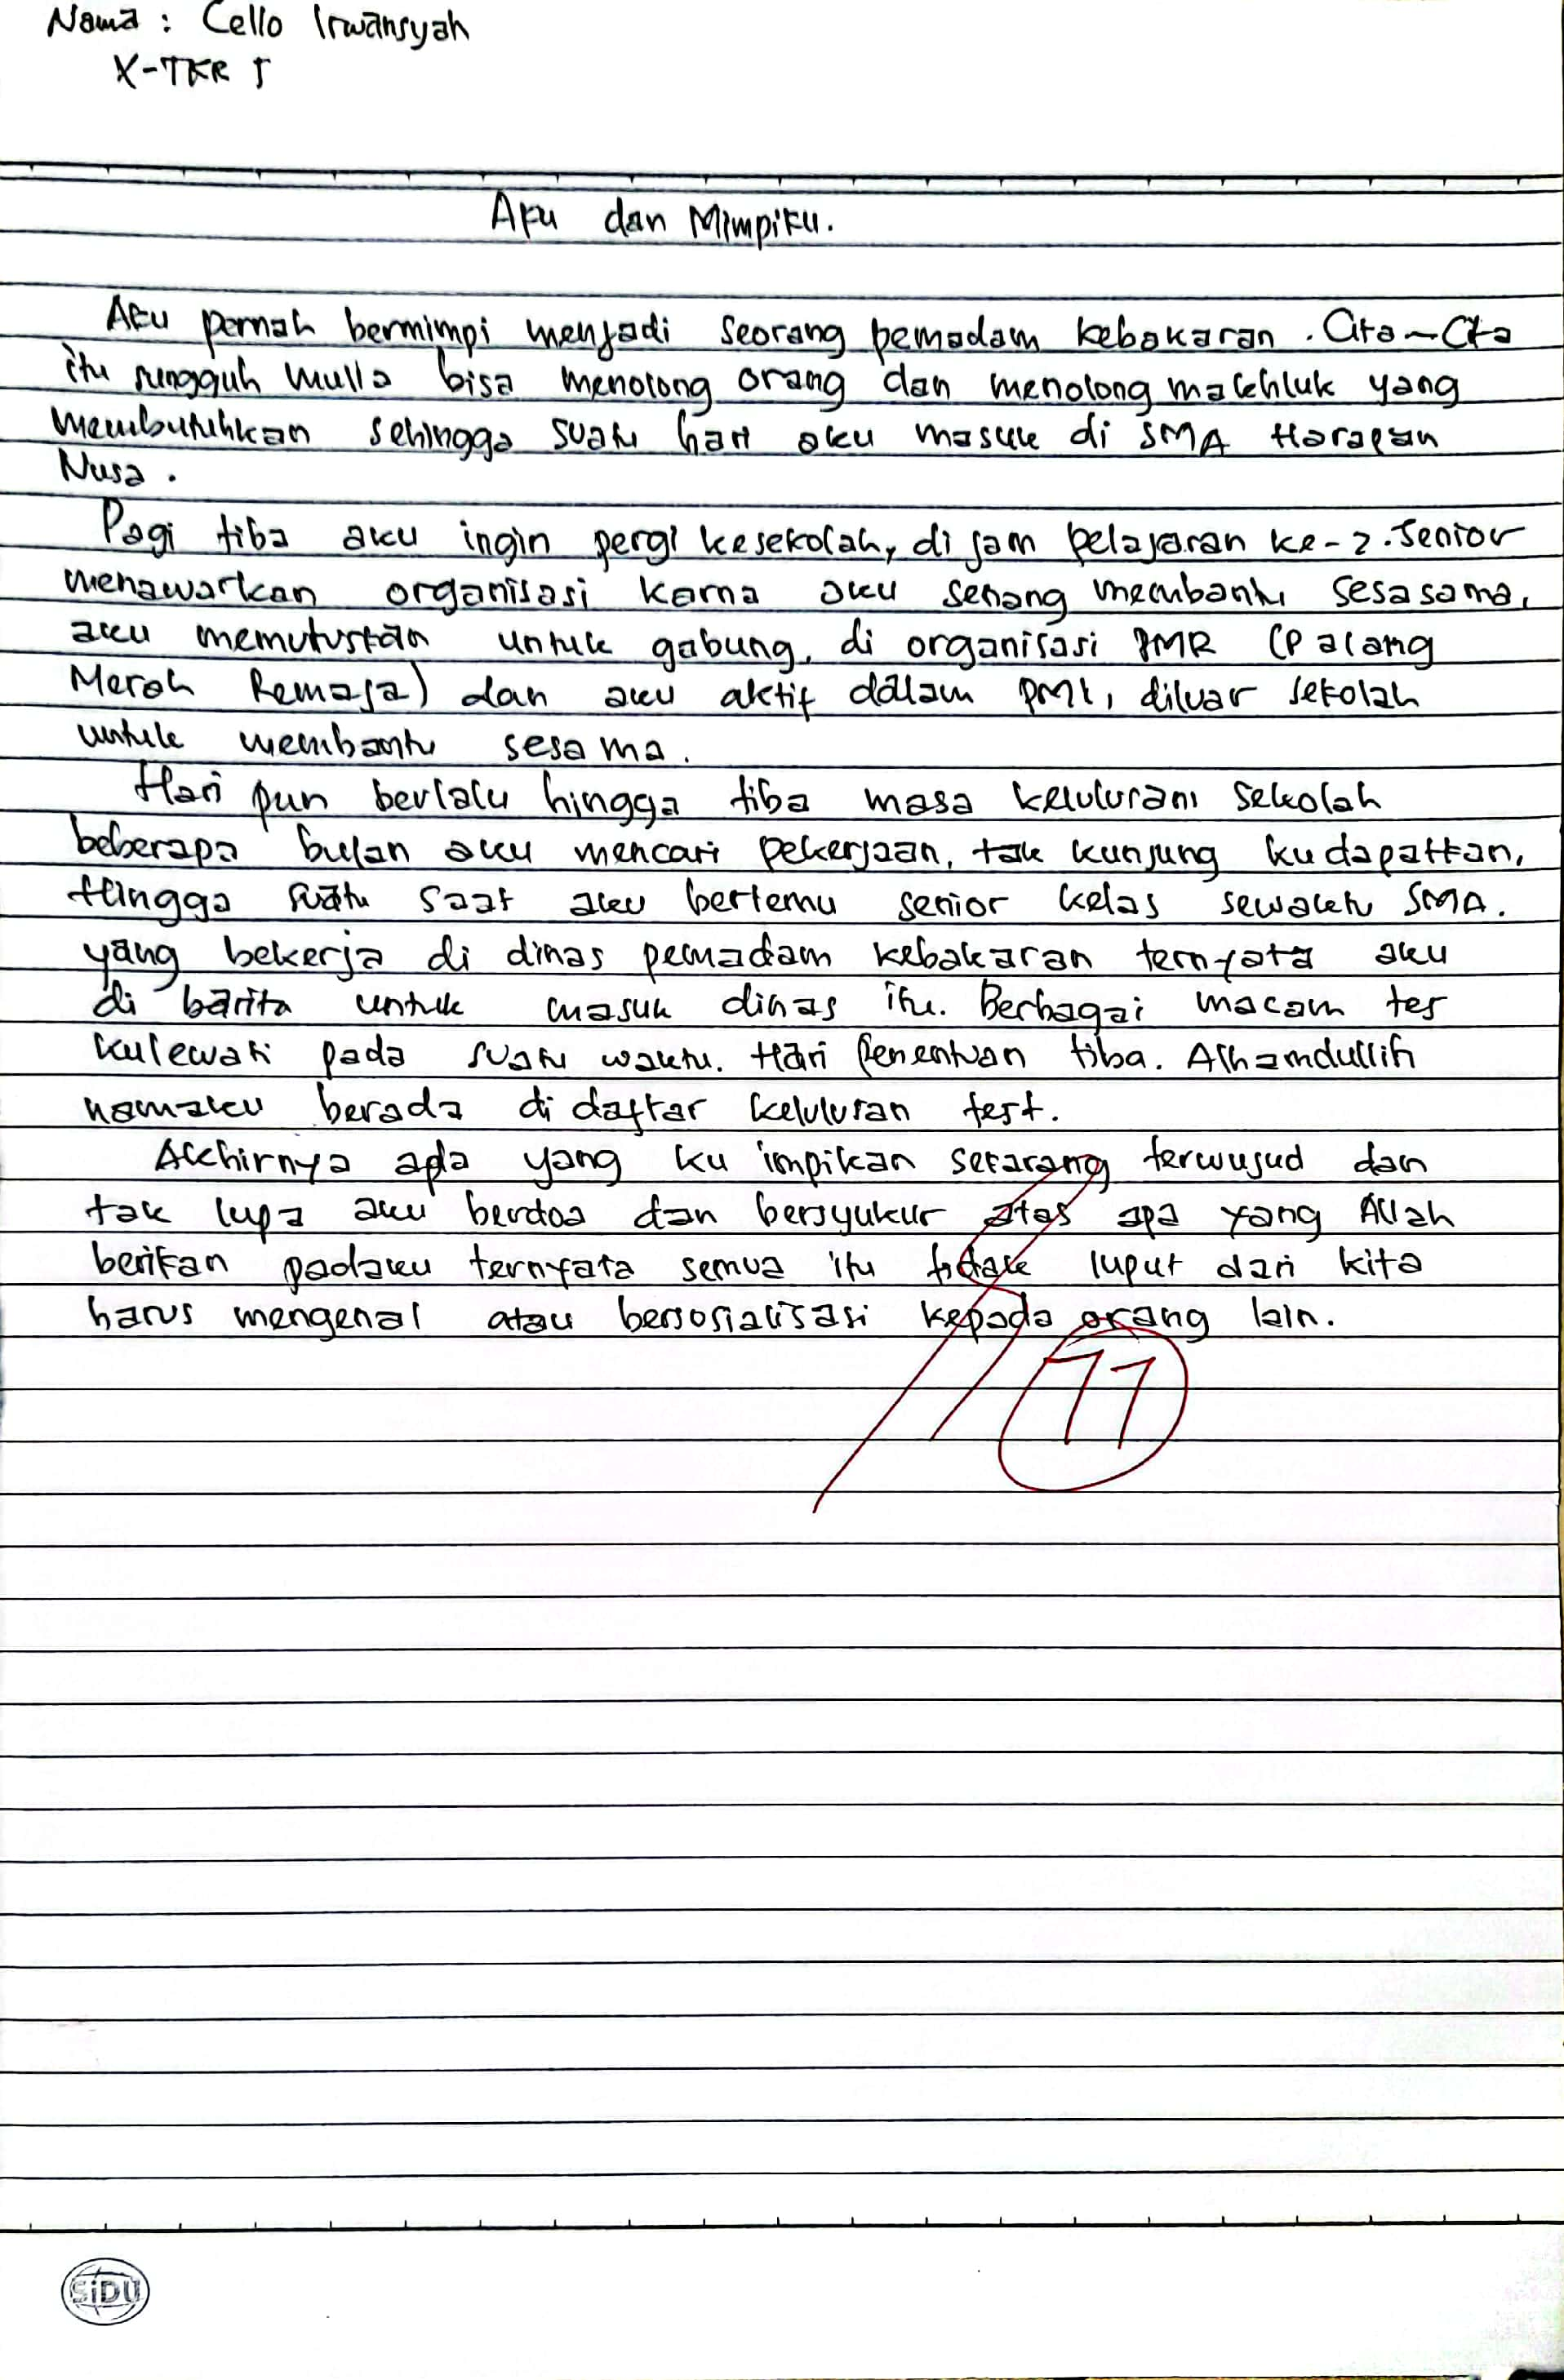 Nama : Cello Irwansyah
X-TKR 5
Aku dan Mimpiku.
Aku pernah bermimpi menjadi seorang pemadam kebakaran. Cita-Cita
itu sungguh mulia bisa menolong orang dan menolong makhluk yang
membutuhkan sehingga suatu hari aku masuk di SMA Harapan
Nusa.
Pagi tiba aku ingin pergi kesekolah, di jam pelajaran ke-2. Senior
menawarkan organisasi karna aku senang membantu sesasama,
aku memutuskan untuk gabung, di organisasi PMR (Palang
Merah Remaja) dan aku aktif dalam PMI, diluar sekolah
untuk membantu sesama.
Hari pun berlalu hingga tiba masa kelulusan sekolah
beberapa bulan aku mencari pekerjaan, tak kunjung kudapatkan,
Hingga suatu saat aku bertemu senior kelas sewaktu SMA.
yang bekerja di dinas pemadam kebakaran ternyata aku
di untuk masuk dinas itu. Berbagai macam tes
kulewati pada suatu waktu. Hari Penentuan tiba. Alhamdullih
namaku berada di daftar kelulusan test.
Akhirnya apa yang ku impikan sekarang terwujud dan
tak lupa aku berdoa dan bersyukur atas apa yang Allah
berikan padaku ternyata semua itu tidak luput dari kita
harus mengenal atau bersosialisasi kepada orang lain.
77
SiDU